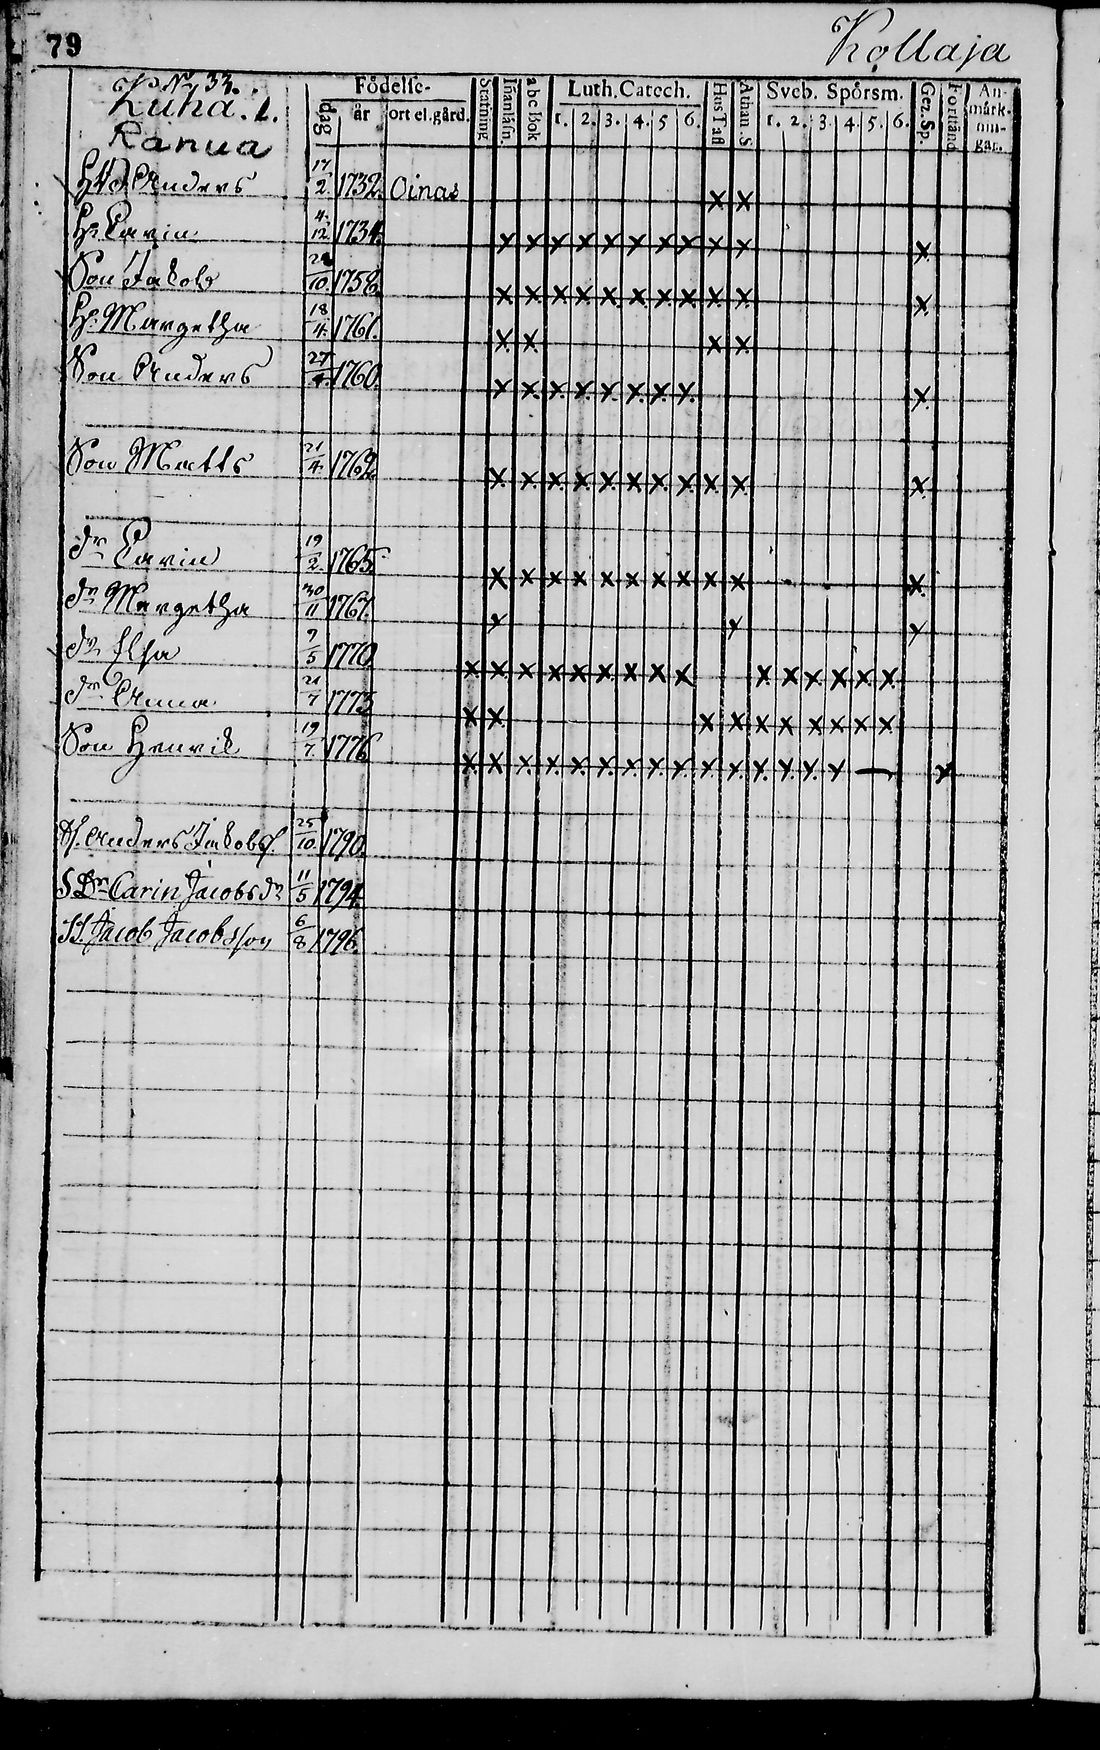 79
Kollaja
No 33.
Kuha. 1.
Ranua
Födelse-
dag
år
ort el. gård.
Stafning
Inanläsn.
abc Bok
Luth. Catech.
1. 2. 3. 4. 5 6.
Hus Tafl
Athan. S
Sveb. Spörsm.
1. 2. 3. 4. 5. 6.
Gez. Sp.
Förstånd
An-
märk-
nin-
gar.
Anders 17/2 1732. Oinas x x
Hu Carin 4/12 1734. x x x x x x x x x x x
Son Jakob /10. 1758. x x x x x x x x x x x
Hu. Margetha 18/4. 1761. x x x x
Son Anders 27/ 1760. x x x x x x x x x
Son Matts 21/4. 1762. x x x x x x x x x x x
dr Carin 19/2. 1765. x x x x x x x x x x x
dr Margetha 30/11 1767. x x x
dr Elsa 9/5 1770. x x x x x x x x x x x x x x x
dr Anna 21/7 1773 x x x x x x x x x x
Son Henrik 19/7. 1776 x x x x x x x x x x x x x x x — x
Anders Jakobs. 25/10. 1790.
S. Dr Carin Jacobsdr 11/5 1794.
SS. Jacob Jacobsson 6/8 1796.